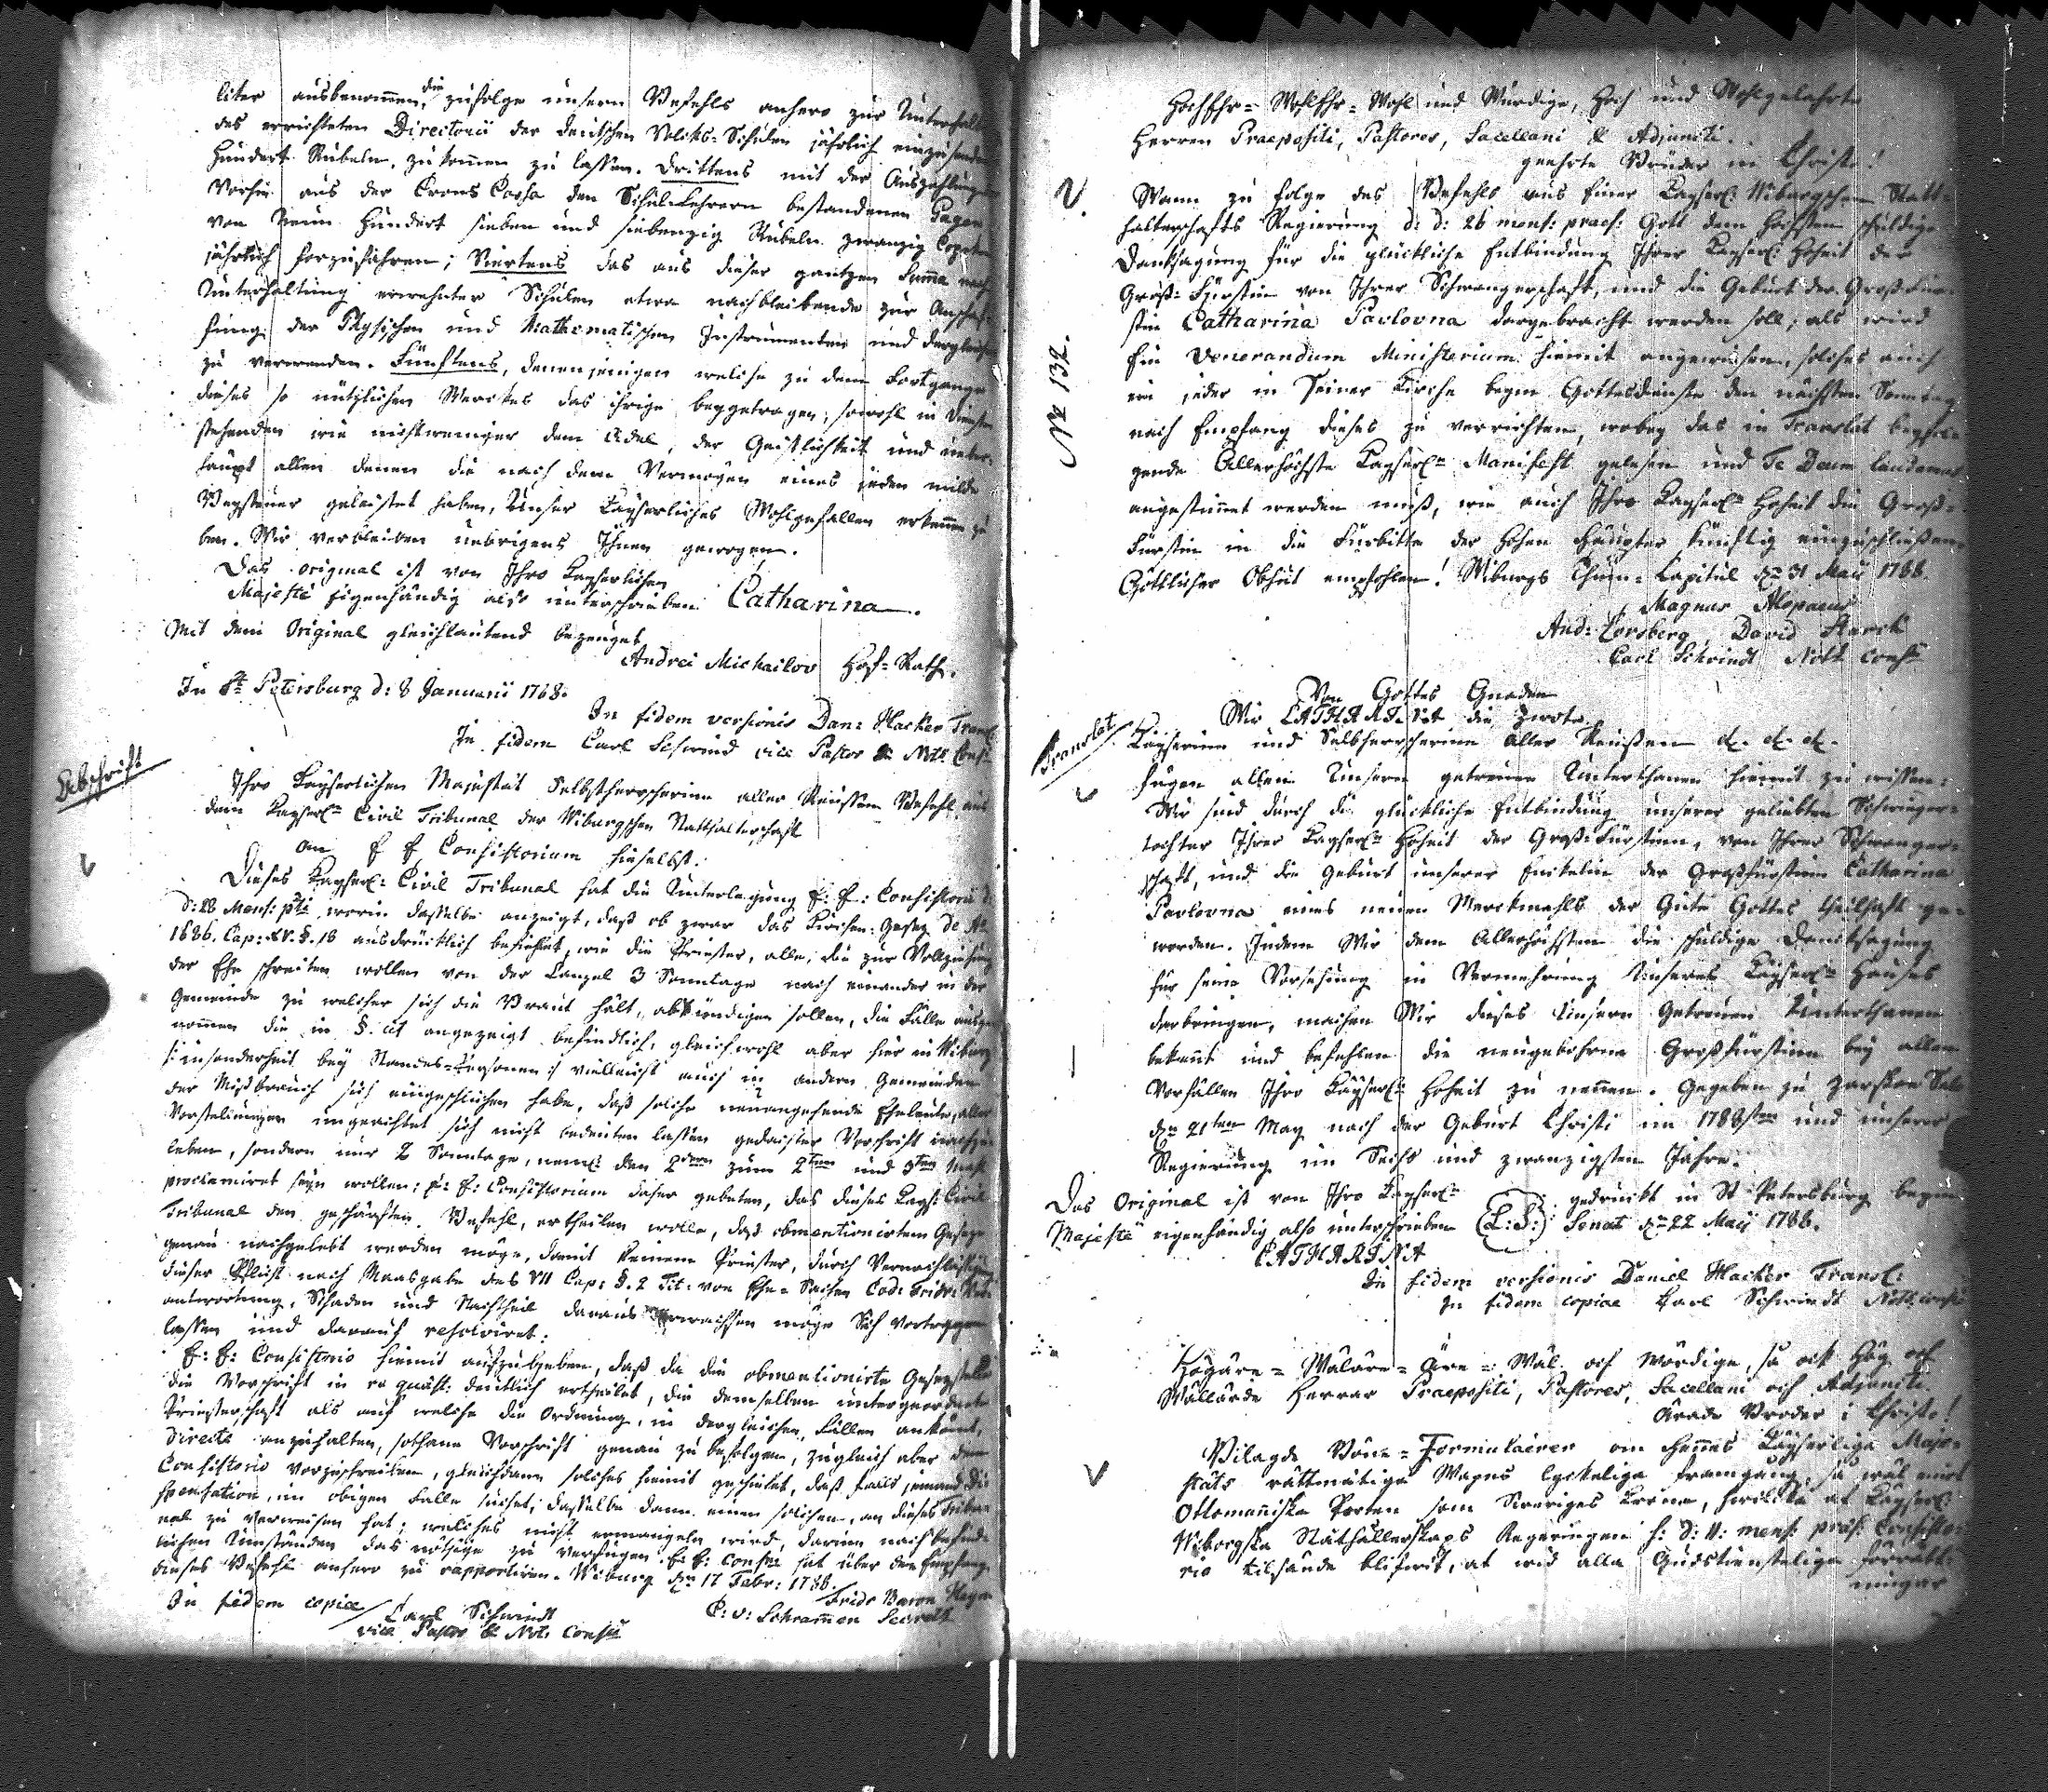 liter ausbenommen, die zufolge unsern Befehls anhero zur Unterhalt
des errichteten Directorii der deutschen Volcks-Schulen jährlich einzusenden
Hundert Rubeln, zukommen zu lassen. Drittens mit der Auszahlung
vorhin aus der Crons Cassa den Schul-Lehrern bestandenen Gagen
von Neun Hundert sieben und siebenzig Rubeln zwanzig Copeken
jährlich fortzufahren; Viertens das aus dieser gantzen Summa nach
Unterhaltung erwehnter Schulen etwa nachbleibende zur Anschaf-
fung der Physischen und Mathematischen Instrumenten und dergleichen
zu verwenden. Fünftens, denenjenigen welche zu dem Fortgange
dieses so nützlichen Werckes das ihrige beygetragen, sowohl in Diensten
stehenden wie nichtweniger dem Adel, der Geistlichkeit und über-
haupt allen denen die nach dem Vermögen eines jeden milde
Beysteuer geleistet haben, Unser Kayserliches Wohlgefallen erkennen zu
ben. Wir verbleiben uebrigens Ihnen gewogen.
Das original ist von Ihro Kayserlichen
Majesté Eigenhändig also unterschrieben Catharina.
Mit dem Original gleichlautend bezeuget
Andrei Michailov Hof-Rath.
In St Petersburg d: 8 Januarii 1788.
In fidem versionis Dan: Hacker Transl
In fidem Carl Schwind vice Pastor & Nots Consii
Abschrift
Ihro Kayserlichen Majestät Selbstherrscherinn aller Reussen Befehl aus
dem Kayserln Civil Tribunal der Wiburgschen Statthalterschaft
an E E Consistorium hieselbst.
Dieses Kayserl: Civil Tribunal hat die Unterlegung E: E: Consistorii d:
d: 28 Mens: pti worin dasselbe anzeigt, daß ob zwar das Kirchen-Gesez de Ao
1686. Cap: XV. §. 18 ausdrücklich befiehlet, wie die Priester, alle, die zur Vollziehung
der Ehe schreiten wollen von der Canzel 3 Sonntage nach einander in der
Gemeinde zu welcher sich die Braut hält, abkündigen sollen, die Fälle ausge-
nommen die in §. cit angezeigt befindlich, gleichwohl aber hier in Wiburg
/: insonderheit bey Standes-Personen :/ vielleicht auch in andern Gemeinden
der Mißbrauch sich eingeschlichen habe, daß solche neuangehende Eheleute, aller
Vorstellungen ungeachtet sich nicht bedeuten lassen gedachter Vorschrift nachzu-
leben, sondern nur 2 Sonntage, neml: den 2dern zum 2ten und 3ten Mahl
proclamiret seyn wollen; E: E: Consistorium daher gebeten, das dieses Kays: Civil
Tribunal den geschärften Befehl, ertheilen wolle, daß obmentionirtem Geseze
genau nachgelebt werden möge, damit keinem Priester, durch Vernachläßigung
dieser Pflicht nach Maasgabe des VII Cap: §. 2 Tit: von Ehe-Sachen Cod: Frid:
antwortung, Schaden und Nachtheil daraus erwachsen möge Sich vortragen
lassen und darauf resolviret:
E: E: Consistorio hiemit aufzugeben, daß da die obmentionirte Gesezstelle
die Vorschrift in re quæst: deutlich ertheilet, die demselben untergeordnete
Priesterschaft als auf welche die Ordnung, in dergleichen Fällen ankömt,
directe anzuhalten, sothane Vorschrift genau zu befolgen, zugleich aber dem
Consistorio vorzuschreiben, gleichdann solches hiemit geschiehet, daß falls jemand Di-
spensation, im obigen Falle suchet, dasselbe dann einen solchen, an dieses Tribu-
nal zu verweisen hat; welches nicht ermangeln wird, darinn nach befind-
lichen Umständen das nöthige zu verfügen. E: E: Consm hat über den Empfang
dieses Befehl anhero zu rapportiren. Wiburg den 17 Febr: 1788.
Fridr Baron Hagen
In fidem copiæ
Carl Schwindt
P: v: Schrammen Secrett
vice Pastor & Nots Consii
Hochehr- Wohlehr- Wohl und Würdige, Hoch und Wohlgelahrte
Herren Praepositi, Pastores, Sacellani & Adjuncti.
geehrte Brüder in Christo!
Wann zu folge des Befehls aus Einer Kayserl: Wiburgschen Statt-
halterschafts Regierung d: d: 26 mens: praes: Gott dem Höchsten schuldige
Danksagung für die glückliche Entbindung Ihrer Kayserl: Hoheit der
Groß-Fürstin von Ihrer Schwangerschaft, und die Geburt der Großfür-
stin Catharina Pavlovna dargebracht werden soll; als wird
Ein Venerandum Ministerium hiemit angewiesen, solches auch
ein jeder in Seiner Kirche beym Gottesdienste den nächsten Sonntag
nach Empfang dieses zu verrichten, wobey das in Translat beyfol-
gende Allerhöchste Kayserle Manifest gelesen und Te Deum laudamus
angestimmt werden muß, wie auch Ihro Kayserle Hoheit die Groß-
Fürstin in die Fürbitte der hohen Häupter künftig einzuschließen.
Göttlicher Obhut empfohlen! Wiburgs Thum-Capitul den 31 Maij 1788.
Magnus Alopaeus
And: Forsberg, David Starck
Carl Schvindt Nott Consii
No 132.
Von Gottes Gnaden
Wir CATHARINA die zwote
Translat
Kayserinn und Selbherrscherinn aller Reussen &. &. &.
fügen allen Unsern getreuen Unterthanen hiemit zu wissen:
Wir sind durch die glückliche Entbindung unserer geliebten Schwieger-
tochter Ihrer Kayserln Hoheit der Groß-Fürstinn, von Ihrer Schwanger-
schaft, und die Geburt unserer Enkelin der Großfürstinn Catharina
Pavlovna eines neuen Merckmahls der Güte Gottes theilhaft ge-
worden. Indem Wir dem Allerhöchsten die schuldige Dancksagung
für seine Vorsehung in Vermehrung Unseres Kayserln Hauses
darbringen, machen Wir dieses Unsern Getreuen Unterthanen
bekannt und befehlen die neugebohrne Großfürstinn bey allen
Vorfällen Ihro Kayserl: Hoheit zu nennen. Gegeben zu Zarskoe Selo
den 21ten May nach der Geburt Christi im 1788sten und unserer
Regierung im Sechs und zwanzigsten Jahre.
Das Original ist von Ihro Kayserln
Majesté eigenhändig also unterschrieben (L: S:) gedruckt in St Petersburg beym
Senat den 22 Maij 1788.
CATHARINA
In fidem versionis Daniel Hacker Transl:
In fidem copiae Carl Schwindt Nott: consii
Högäre- Wäläre- Äre- Wäl och Wördige, så ock Hög och
Wällärde Herrar Praepositi, Pastores, Sacellani och Adjuncti.
Ärade Bröder i Christo!
Bilagde Böne-Formulairer om Hennes Käyserliga Maje-
stäts rättmätiga Wapns lyckeliga framgång, så wäl emot
Ottomanniska Porten som Sweriges Krona, hwilka af Käyserl:
Wiborgska Ståthållerskaps Regeringen h: d: 11: mens: præs: Consisto-
rio tilsände blifwit, at wid alla Gudstienstelige förrätt-
ningar